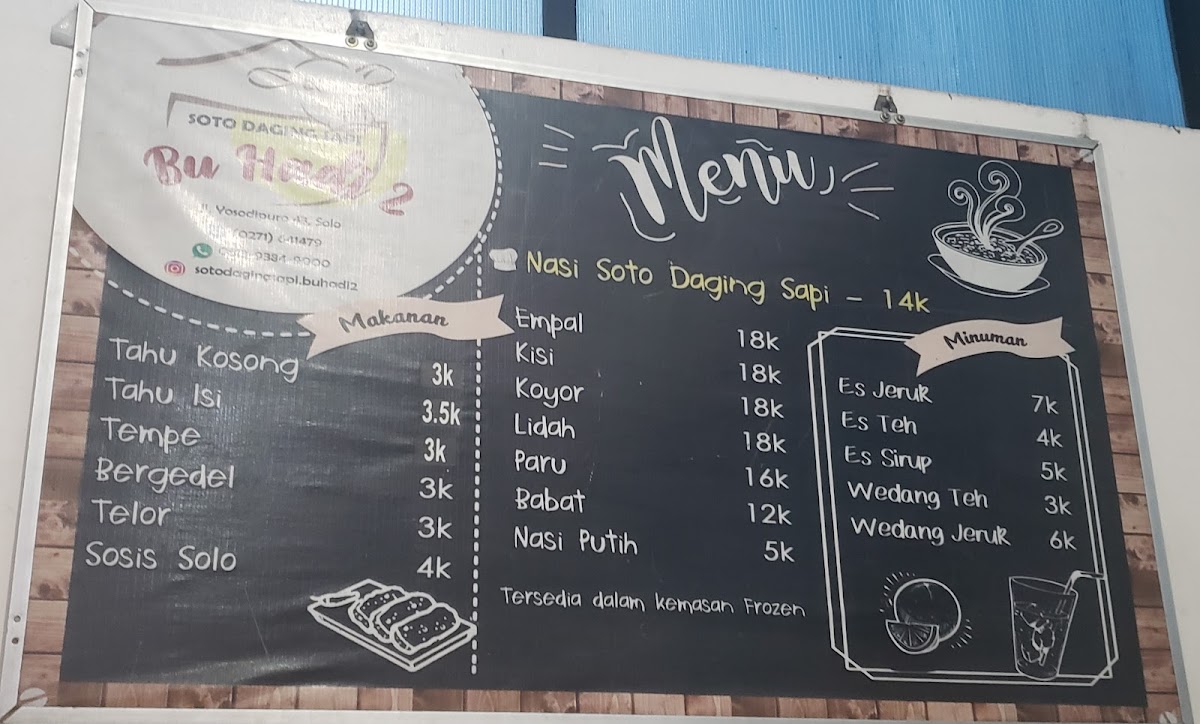 SOTO DAGING SAPI
Bu Hadi 2
Jl. Yosodipuro 43, Solo
(0271) 641479
sotodagingsapi.buhadi2
Menu
Nasi Soto Daging Sapi - 14k
Makanan
Tahu Kosong 3k
Tahu Isi 3.5k
Tempe 3k
Bergedel 3k
Telor 3k
Sosis Solo 4k
Empal 18k
Kisi 18k
Koyor 18k
Lidah 18k
Paru 16k
Babat 12k
Nasi Putih 5k
Tersedia dalam kemasan Frozen
Minuman
Es Jeruk 7k
Es Teh 4k
Es Sirup 5k
Wedang Teh 3k
Wedang Jeruk 6k